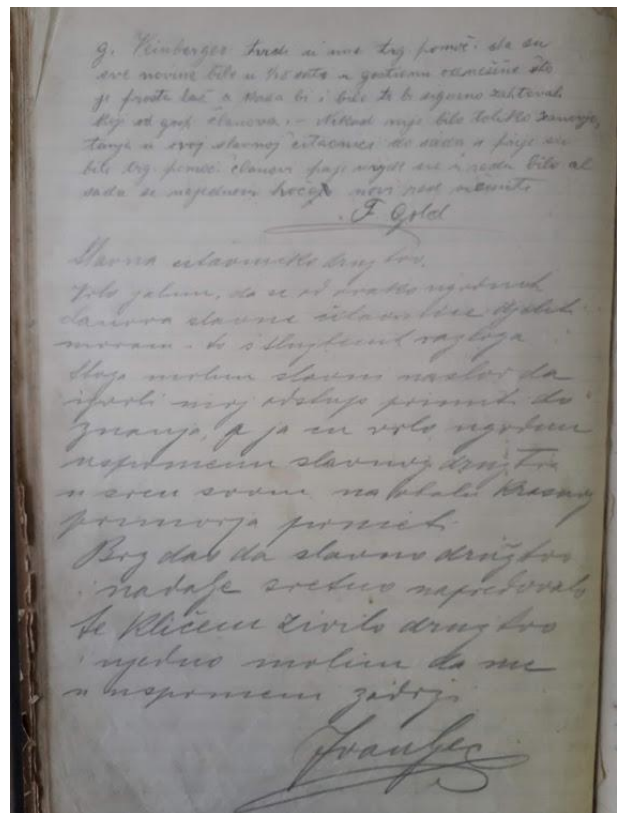 g. Weinberger tvrdi u ime trg. pomoć. da su
sve novine bile u 1/2 sata u gostionu odnešene što
je prosta laž a kada bi i bilo to bi sigurno zahtevali
koji od gosp. članova. – Nikad nije bilo toliko
u ovoj slavnoj čitaonici do sada a prije su
bili trg. pomoć. članovi pa je svugdje mir i reda bilo al
sada se najedanput hoće novi red
F Gold
Slavno čitaoničko družtvo.
Vrlo žalim, da se od ovako ugodnih
članova slavne čitaonice djeliti
moram – to s službenih razloga
Stoga molim slavni naslov da
izvoli moj odstup primiti do
znanja, a ja ću vrlo ugodnu
uspomenu slavnog družtva
u srcu svom na obalu krasnog
primorja ponieti.
Bog dao da slavno družtvo
i nadalje sretno napredovalo
te kličem živilo družtvo
i ujedno molim da me
u uspomeni zadrži